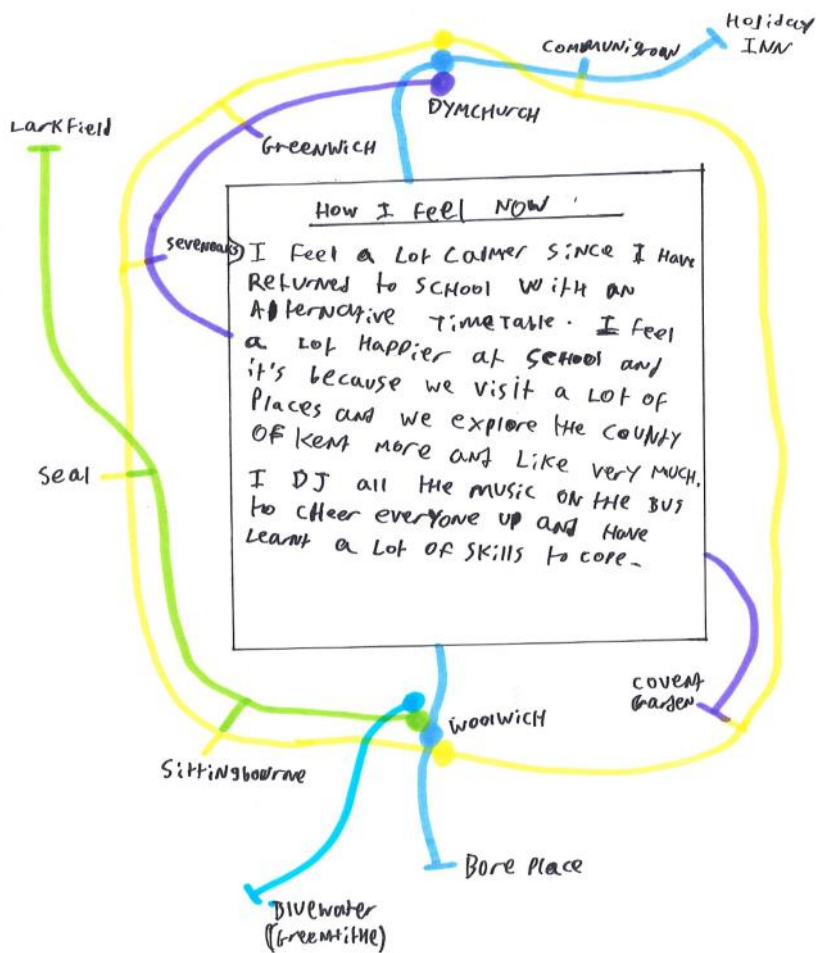 Holiday
INN
COMMUNIGROW
Larkfield
DYMCHURCH
Greenwich
Sevenoaks
How I Feel NOW
I Feel a Lot Calmer Since I Have
Returned to SCHOOL WITH an
Alternative Timetable. I Feel
a Lot Happier at School and
it's because we visit a Lot of
Places and we explore the County
OF Kent more and Like very MUCH.
I DJ all the music on the Bus
to cheer everyone up and Have
Learnt a Lot of Skills to cope.
Seal
Covent
Garden
Woolwich
Sittingbourne
Bore Place
Bluewater
(Greenhithe)